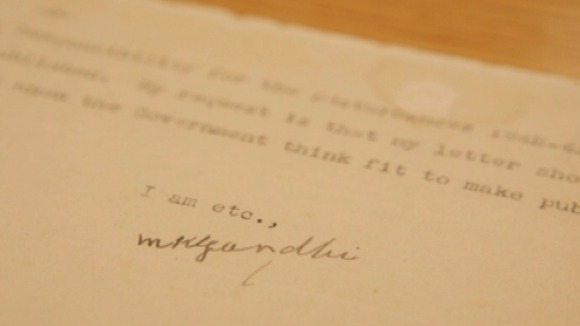 responsibility for the Disturbances 1942-4
published. My request is that my letter sho
show the Government think fit to make pub
I am etc.,
mkgandhi